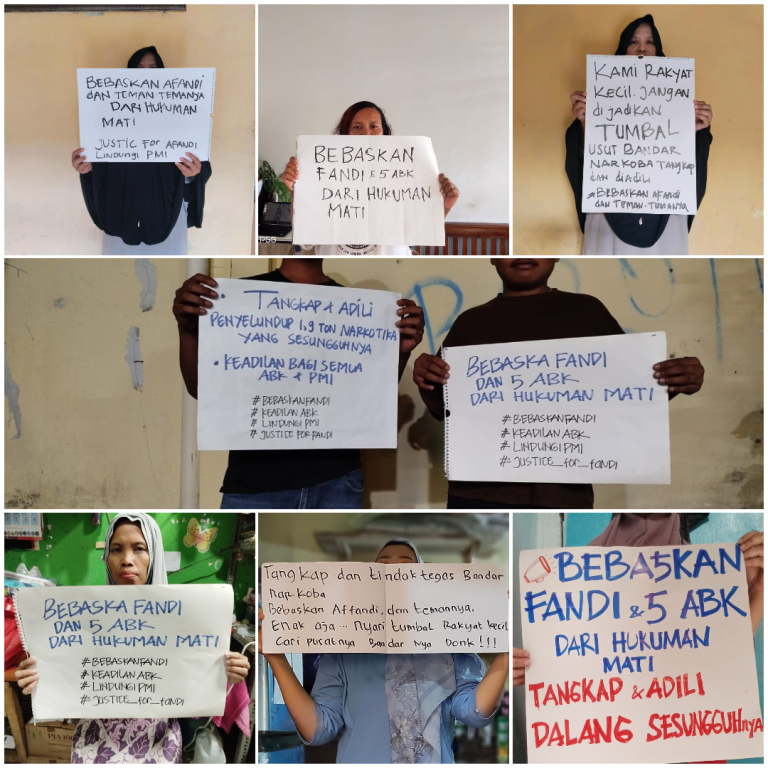 BEBASKAN AFANDI
DAN TEMAN TEMANYA
DARI HUKUMAN
MATI
JUSTIC FOR AFANDI
LINDUNGI PMI
BEBASKAN
FANDI & 5 ABK
DARI HUKUMAN
MATI
KAMI RAKYAT
KECIL. JANGAN
di JADIKAN
TUMBAL
USUT BANDAR
NARKOBA TANGKAP
dan diADILI
#BEBASKAN AFANDI
dAN TEMAN-TEMANYA
• TANGKAP & ADILI
PENYELUNDUP 1,9 TON NARKOTIKA
YANG SESUNGGUHNYA
• KEADILAN BAGI SEMUA
ABK & PMI
# BEBASKANFANDI
# KEADILAN ABK
# LINDUNGI PMI
# JUSTICE FOR FANDI
BEBASKA FANDI
DAN 5 ABK
DARI HUKUMAN MATI
# BEBASKANFANDI
# KEADILAN ABK
# LINDUNGI PMI
# JUSTICE_for_fANDI
BEBASKA FANDI
DAN 5 ABK
DARI HUKUMAN MATI
# BEBASKANFANDI
# KEADILAN ABK
# LINDUNGI PMI
# JUSTICE_for_fANDI
Tangkap dan tindak tegas Bandar
narkoba
Bebaskan Affandi, dan temannya.
Enak aja... Nyari tumbal Rakyat kecil
Cari pusatnya Bandar Nya Donk!!!
BEBASKAN
FANDI & 5 ABK
DARI HUKUMAN
MATI
TANGKAP & ADILI
DALANG SESUNGGUHnya